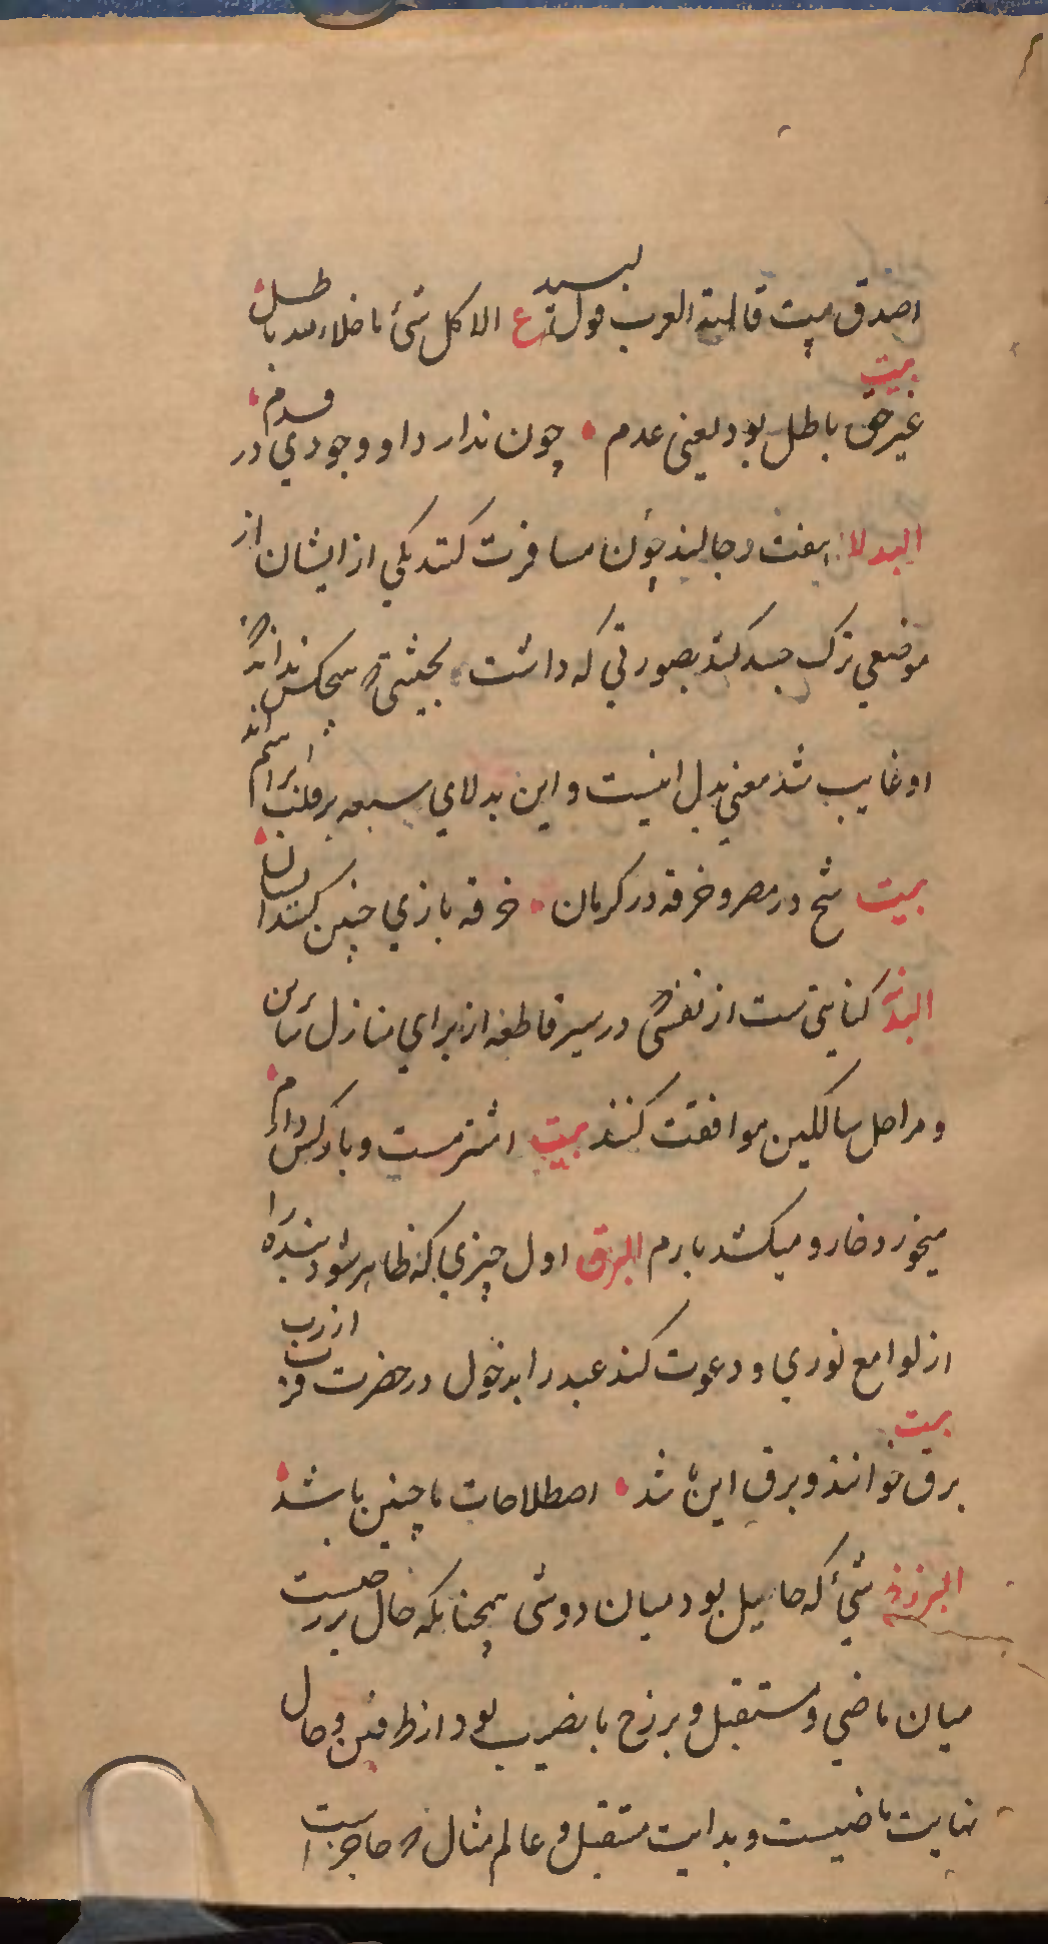 اصدق بیت قالته العرب قول لبید ع الا کل شئ ما خلا الله باطل
بیت
غیر حق باطل بود یعنی عدم چون ندارد او وجودی در قدم
البدلا هفت رجالند چون مسافرت کنند یکی از ایشان از
موضعی ترک جسد کند بصورتی که داشت بحیثیتی که هیچکس نداند که
او غایب شد معنی بدل اینست و این بدلای سبعه بر قلب ابراهیم اند
بیت شخ در مصر و خرقه در کرمان خرقه بازی چنین کنند ایشان
البدنه کنایتی ست از نفسی که در سیر قاطعه از برای منازل سایرین
و مراحل سالکین موافقت کنند بیت اشتر مست و بارکش دارم
میخورد خار و میکشد بارم البرق اول چیزی که ظاهر شود بنده را
از لوامع نوری و دعوت کند عبد را بدخول در حضرت قرب از رب
بیت
برق خوانند و برق این باشد اصطلاحات ما چنین باشد
البرزخ شئ که حایل بود میان دو شئ همچنانکه حال برزخیست
میان ماضی و مستقبل و برزخ با نصیب بود از طرفین و حال
نهایت ماضیست و بدایت مستقبل و عالم مثال که حاجز است